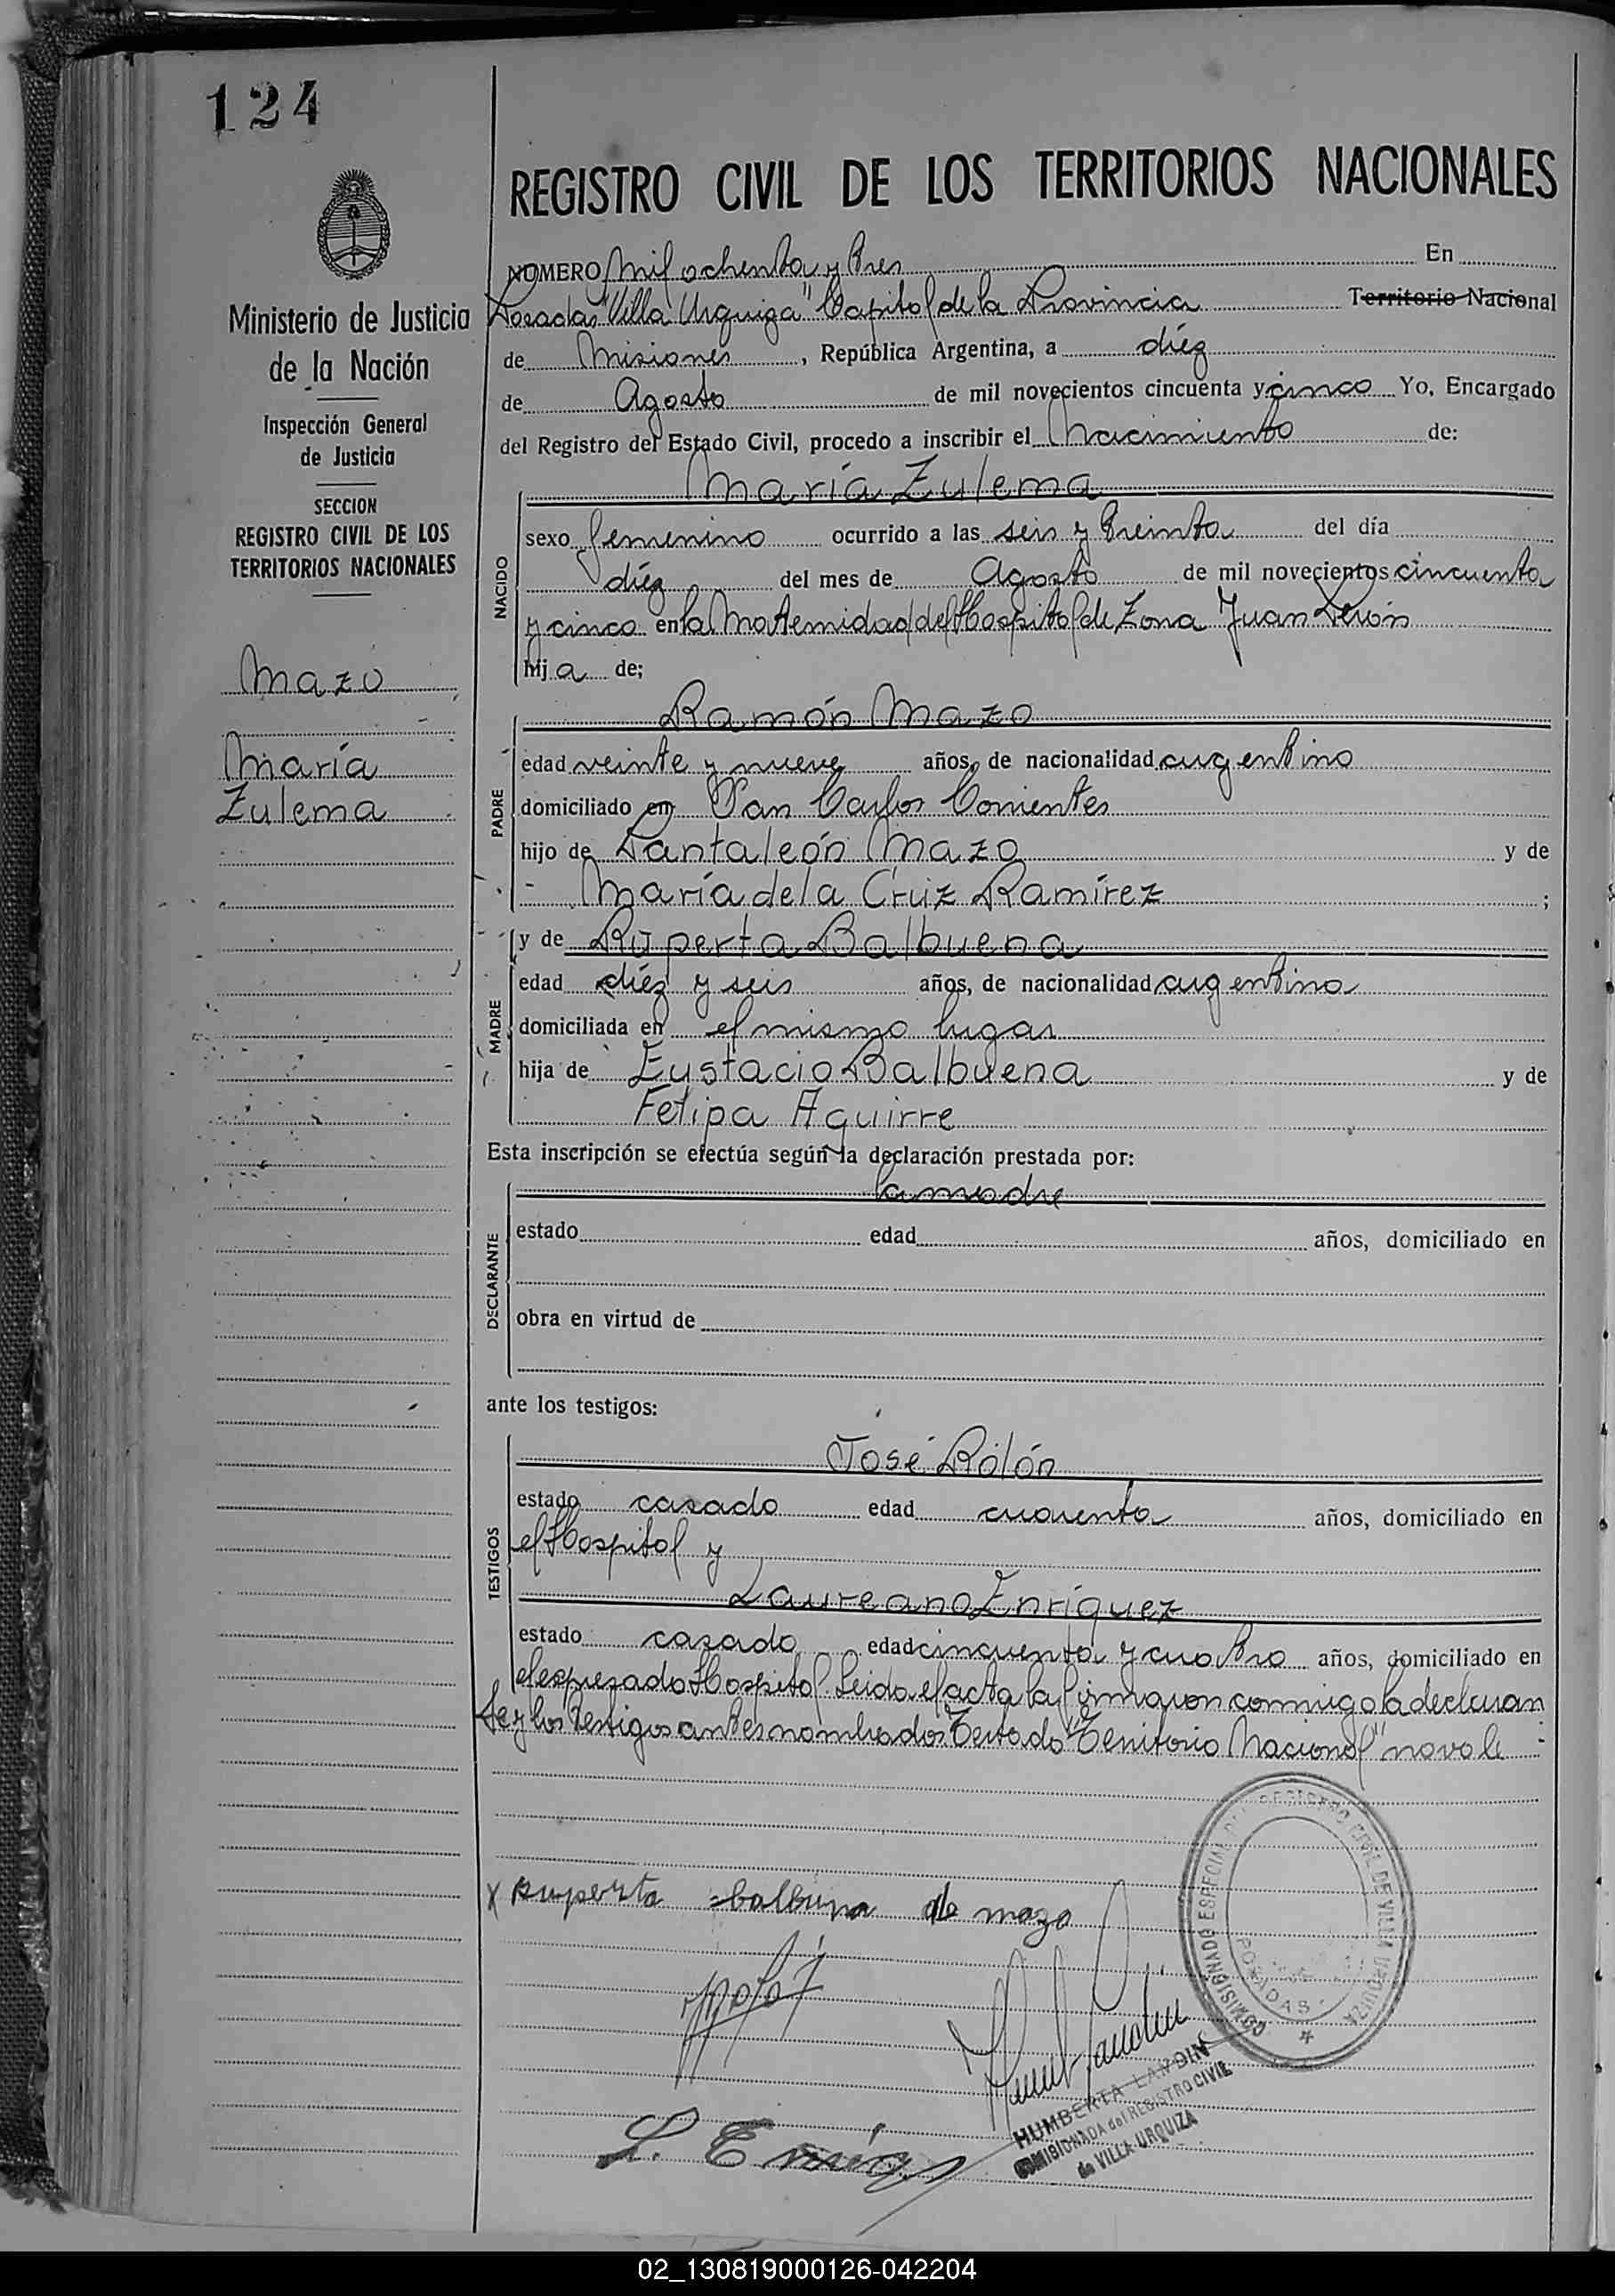 124
REGISTRO CIVIL DE LOS TERRITORIOS NACIONALES
Ministerio de Justicia
de la Nación
Inspección General
de Justicia
SECCION
REGISTRO CIVIL DE LOS
TERRITORIOS NACIONALES
Mazo
María
Zulema
NUMERO Mil ochenta y tres En
Posadas "Villa Urquiza" Capital de la Provincia Territorio Nacional
de Misiones, República Argentina, a diéz
de Agosto de mil novecientos cincuenta y cinco Yo, Encargado
del Registro del Estado Civil, procedo a inscribir el Nacimiento de:
María Zulema
NACIDO
sexo femenino ocurrido a las seis y treinta del día
diéz del mes de Agosto de mil novecientos cincuenta
y cinco en la Maternidad del Hospital de Zona Juan Perón
hija de;
Ramón Mazo
PADRE
edad veinte y nueve años, de nacionalidad argentino
domiciliado en San Carlos Corrientes
hijo de Pantaleón Mazo y de
María de la Cruz Ramírez;
y de Ruperta Balbuena
MADRE
edad diéz y seis años, de nacionalidad argentina
domiciliada en el mismo lugar
hija de Eustacio Balbuena y de
Felipa Aguirre
Esta inscripción se efectúa según la declaración prestada por:
la madre
DECLARANTE
estado edad años, domiciliado en
obra en virtud de
ante los testigos:
José Rolón
TESTIGOS
estado casado edad cuarenta años, domiciliado en
el Hospital y
Laureano Enríquez
estado casado edad cincuenta y cuatro años, domiciliado en
el espresado Hospital. Leida el acta la firmaron conmigo la declaran
te y los testigos antes nombrados Testado "Territorio Nacional" no vale
x Ruperta balbuena de mazo
COMISIONADO ESPECIAL DEL REGISTRO CIVIL DE VILLA URQUIZA
POSADAS
HUMBERTA LANDIN
COMISIONADA del REGISTRO CIVIL
de VILLA URQUIZA
02_130819000126-042204